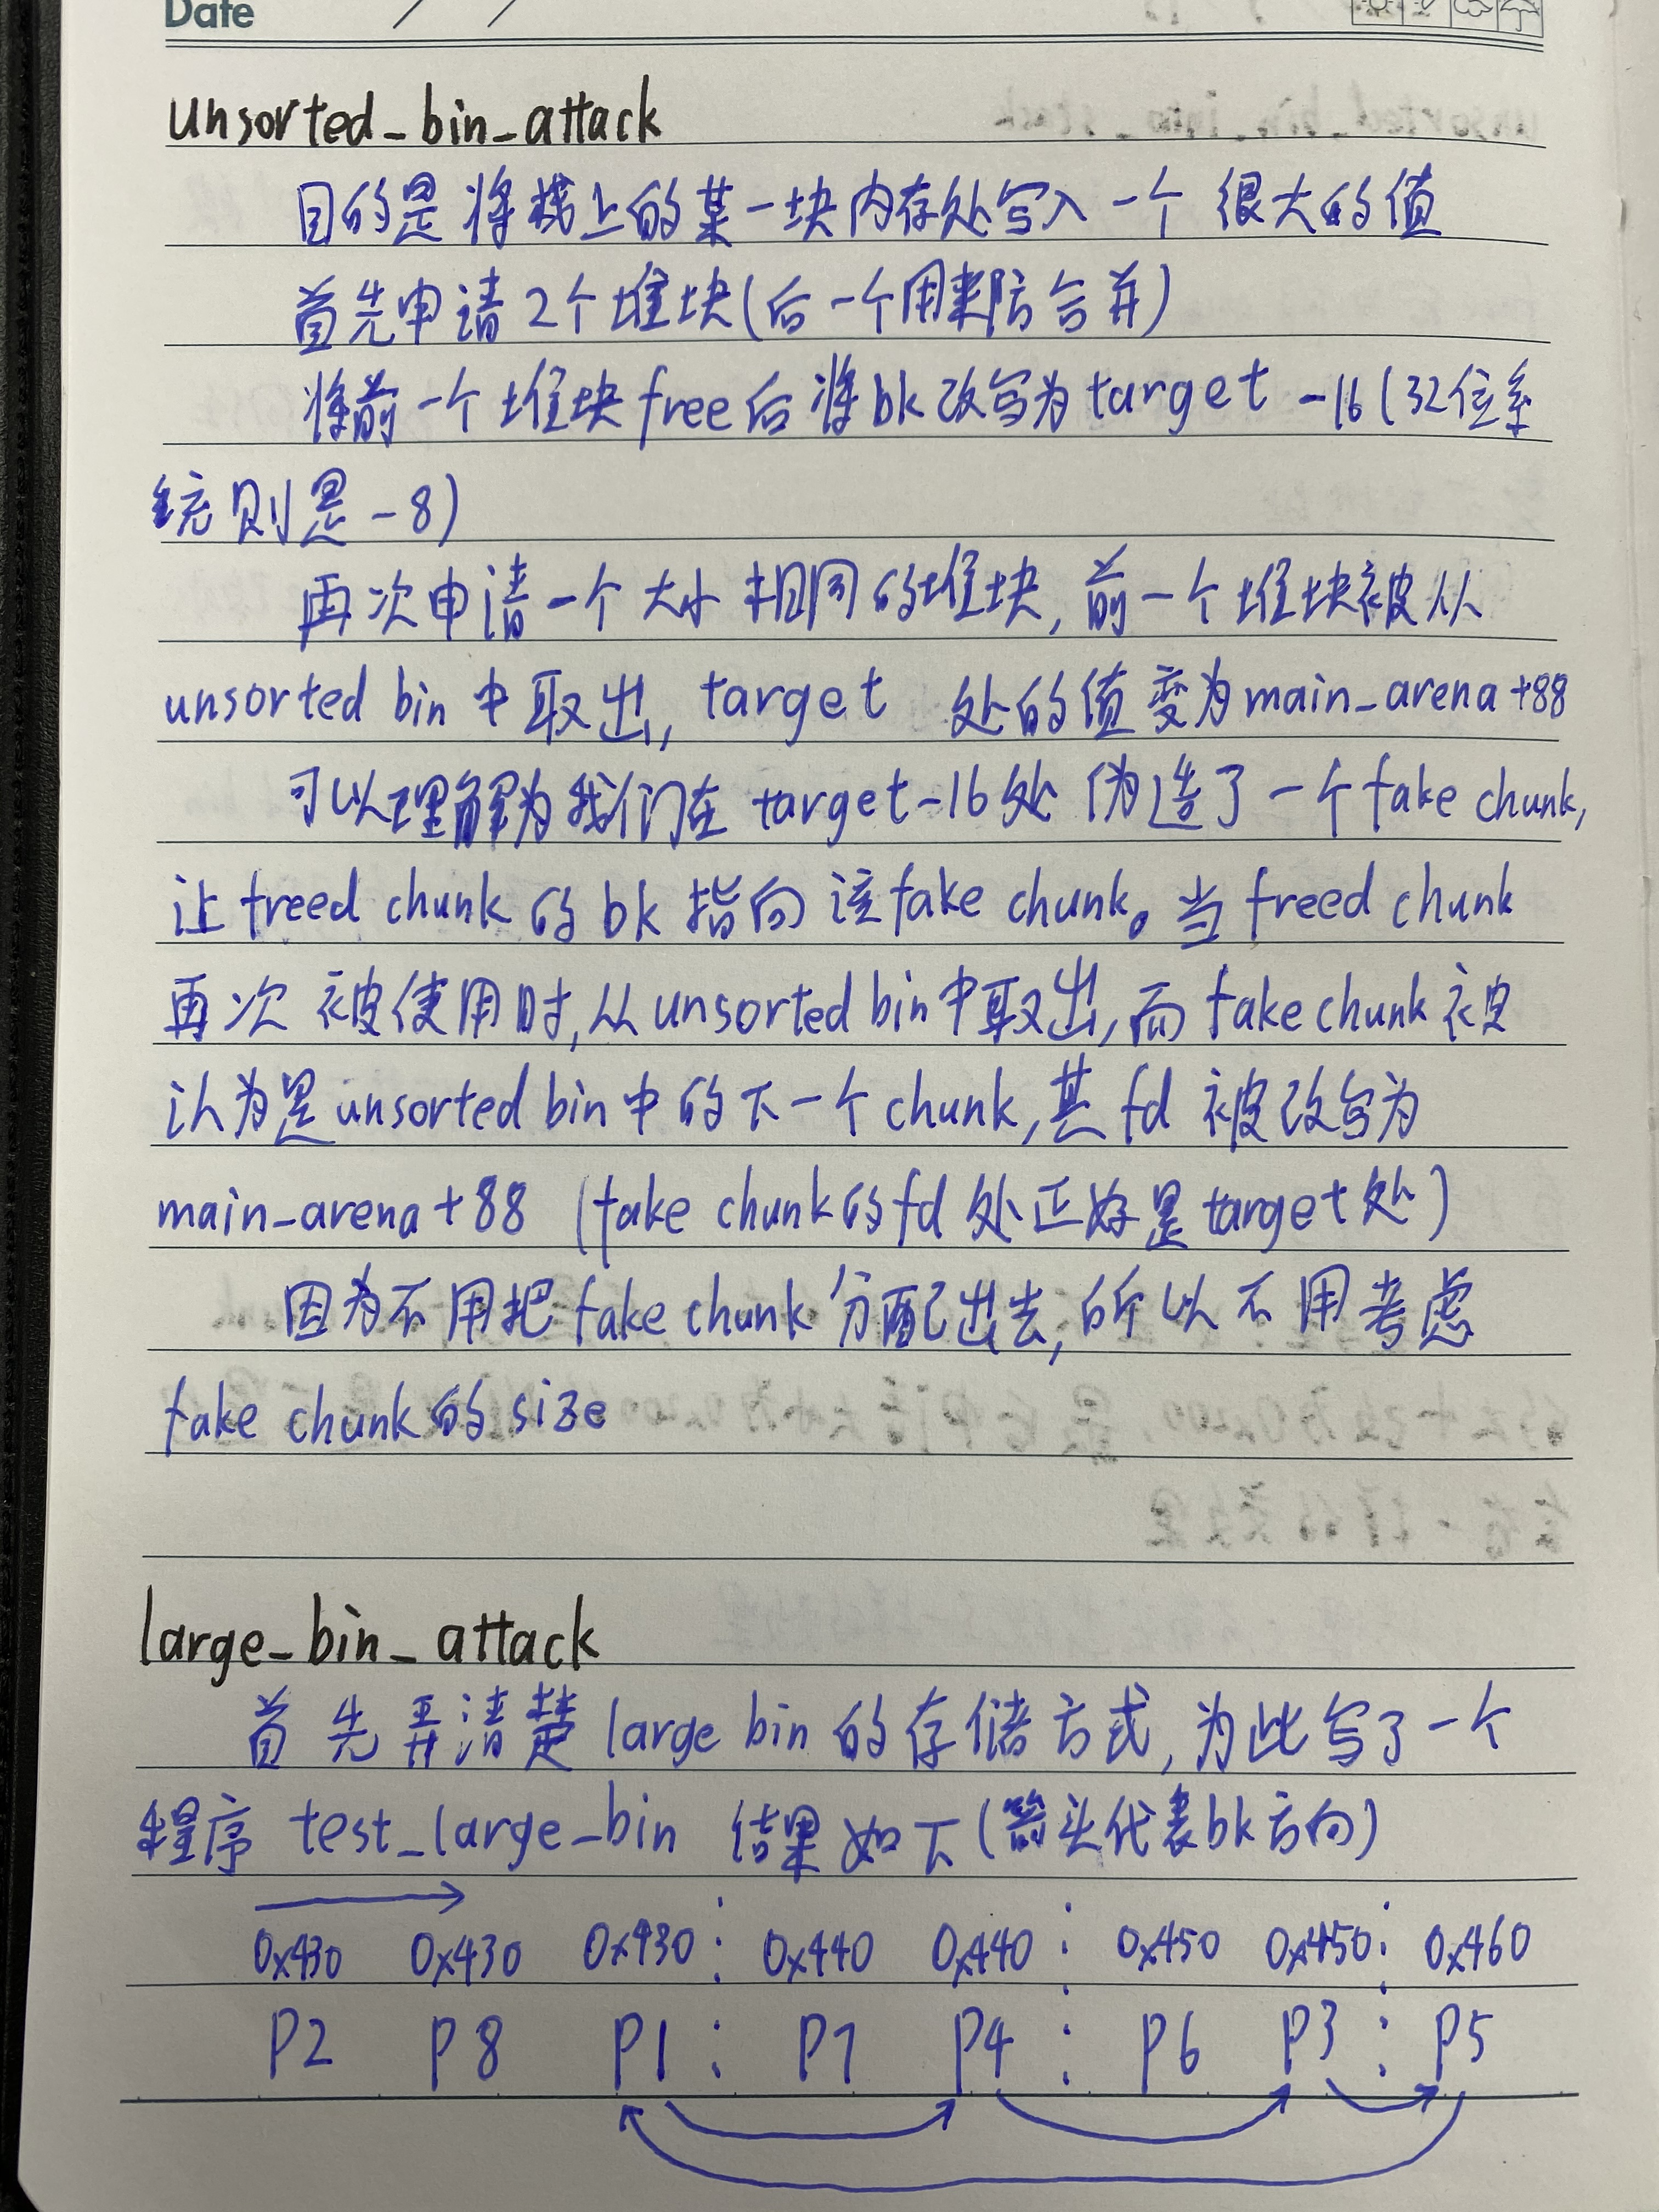 Date / /
unsorted_bin_attack
目的是将栈上的某一块内存处写入一个很大的值
首先申请2个堆块(后一个用来防合并)
将前一个堆块free后将bk改写为target -16(32位系
统则是-8)
再次申请一个大小相同的堆块,前一个堆块被从
unsorted bin中取出,target 处的值变为main_arena+88
可以理解为我们在target-16处伪造了一个fake chunk,
让freed chunk的bk指向该fake chunk。当freed chunk
再次被使用时,从unsorted bin中取出,而fake chunk被
认为是unsorted bin中的下一个chunk,其fd被改写为
main_arena+88 (fake chunk的fd处正好是target处)
因为不用把fake chunk分配出去,所以不用考虑
fake chunk的size
large_bin_attack
首先弄清楚large bin的存储方式,为此写了一个
程序 test_large_bin 结果如下(箭头代表bk方向)
0x430 0x430 0x430 0x440 0x440 0x450 0x450 0x460
P2 P8 P1 P7 P4 P6 P3 P5